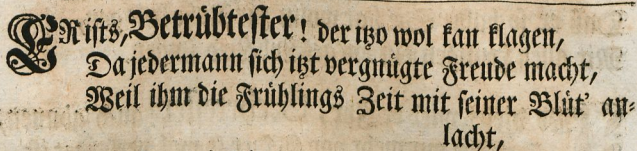 ERists, Betrübtester! der itzo wol kan klagen,
Da jedermann sich itzt vergnügte Freude macht,
Weil ihm die Frühlings Zeit mit seiner Blüt' an-
lacht,